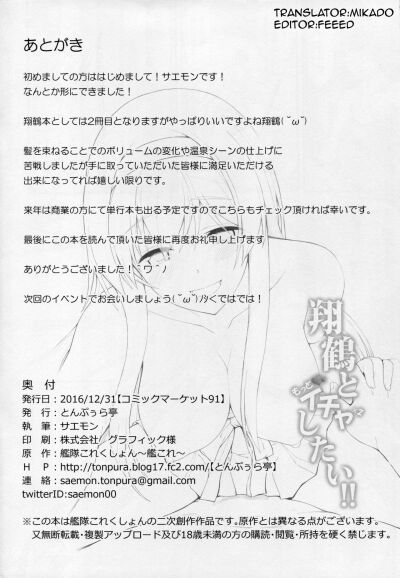 TRANSLATOR:MIKADO
EDITOR:FEEED
あとがき
初めましての方ははじめまして!サエモンです!
なんとか形にできました!
翔鶴本としては2冊目となりますがやっぱりいいですよね翔鶴(˘ω˘)
髪を束ねることでのボリュームの変化や温泉シーンの仕上げに
苦戦しましたが手に取っていただいた皆様に満足いただける
出来になってれば嬉しい限りです。
来年は商業の方にて単行本も出る予定ですのでこちらもチェック頂ければ幸いです。
最後にこの本を読んで頂いた皆様に再度お礼申し上げます
ありがとうございました!
次回のイベントでお会いしましょう(˘ω˘)ﾉｼくではでは!
翔鶴と
もっと
イチャイチャ
したい!!
奥 付
発行日:2016/12/31【コミックマーケット91】
発 行:とんぷぅら亭
執 筆:サエモン
印 刷:株式会社 グラフィック様
原 作:艦隊これくしょん~艦これ~
H P:http://tonpura.blog17.fc2.com/【とんぷぅら亭】
連 絡:saemon.tonpura@gmail.com
twitterID:saemon00
※この本は艦隊これくしょんの二次創作作品です。原作とは異なる点がございます。
又無断転載・複製アップロード及び18歳未満の方の購読・閲覧・所持を硬く禁じます。